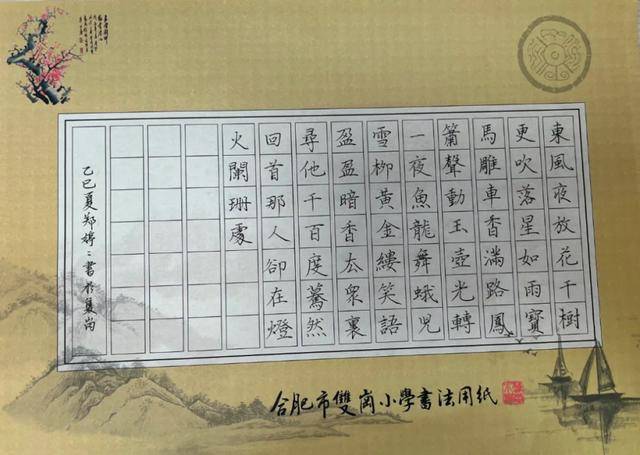 東風夜放花千樹
更吹落星如雨寶
馬雕車香滿路鳳
簫聲動玉壺光轉
一夜魚龍舞蛾兒
雪柳黃金縷笑語
盈盈暗香厺衆裏
尋他千百度驀然
回首那人卻在燈
火闌珊處
乙巳夏郑婷〻書於
合肥市雙崗小學書法用紙